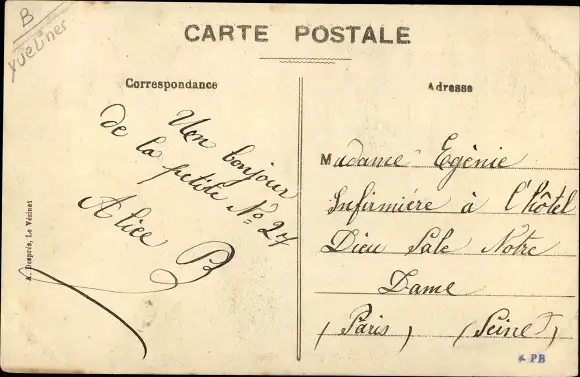 B
Yvelines
CARTE POSTALE
Correspondance
Un bonjour
de la petite No 27
Alice B
A. Desprès, Le Vésinet
Adresse
Madame Egènie
Infirmière à l'hôtel
Dieu Sale Notre
Dame
(Paris) (Seine)
PB